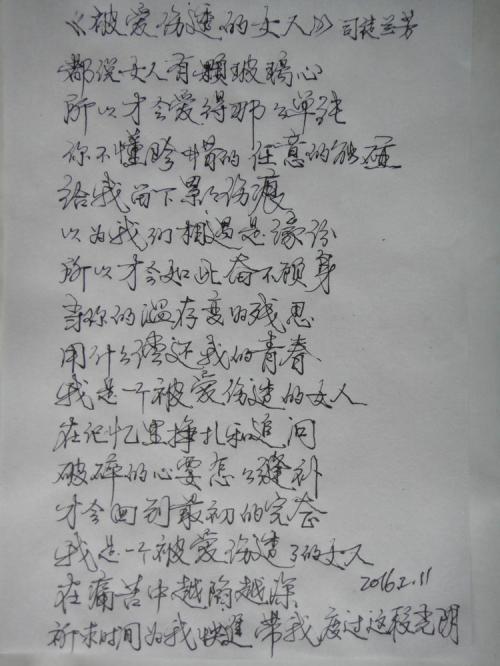 《被爱伤透的女人》 司徒兰芳
都说女人有颗玻璃心
所以才会爱得那么单纯
你不懂的任意的触碰
给我留下累累伤痕
以为我们相遇是缘份
所以才会如此奋不顾身
当你的温存变的残忍
用什么偿还我的青春
我是一个被爱伤透的女人
在记忆里挣扎和追问
破碎的心要怎么缝补
才会回到最初的完整
我是一个被爱伤透了的女人
在痛苦中越陷越深 2016.2.11
祈求时间为我快进 带我度过这段光阴